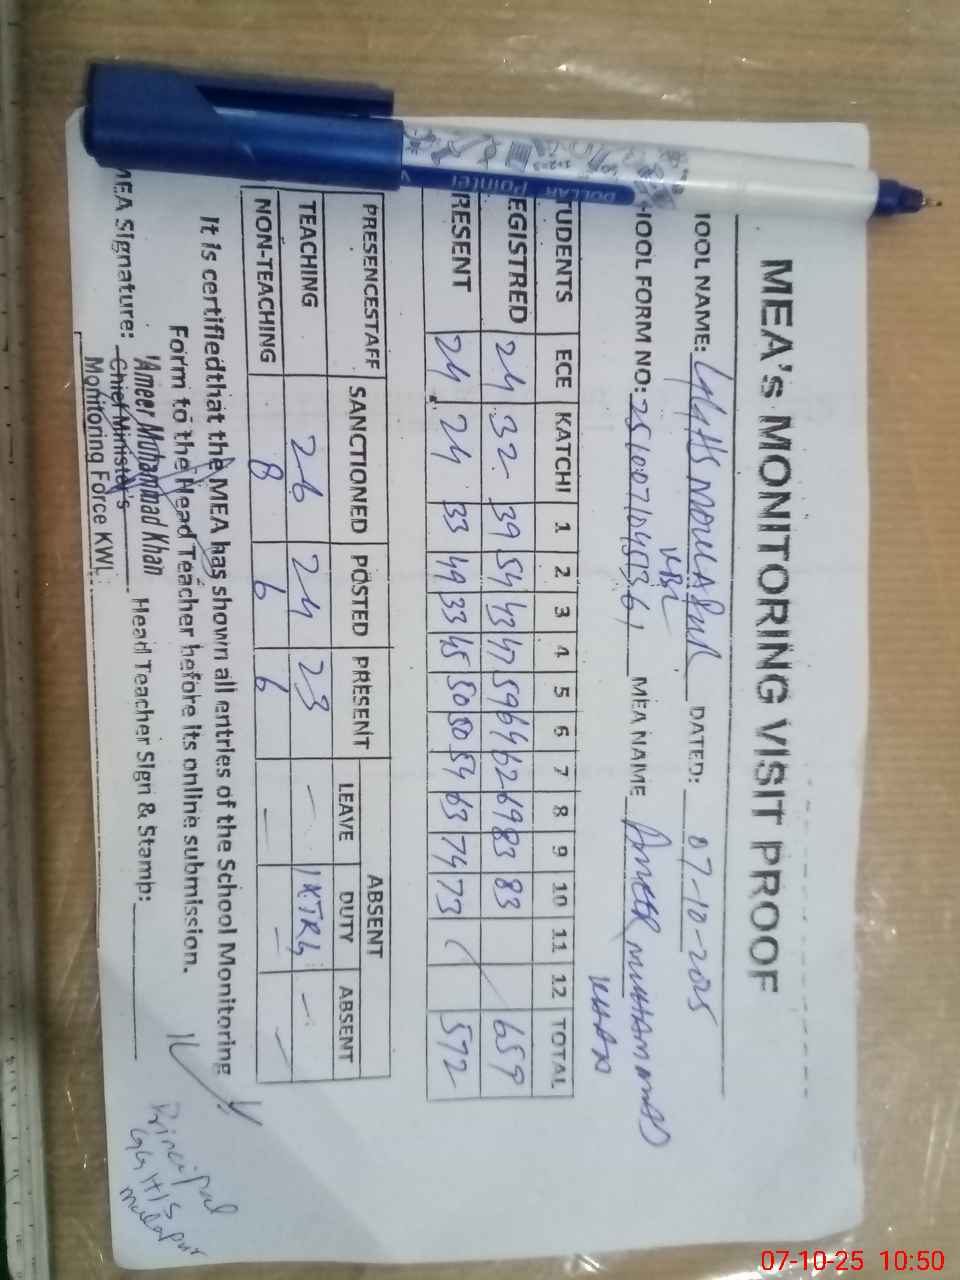 MEA's MONITORING VISIT PROOF
HOOL NAME: GGHS MOULA PUR DATED: 07-10-2025
HOOL FORM NO: MEA NAME AMEER MUHAMMAD
KHAN
TUDENTS ECE KATCHI 1 2 3 4 5 6 7 8 9 10 11 12 TOTAL
EGISTRED 24 32 39 54 43 47 59 64 62 69 83 83 659
RESENT 24 24 33 49 33 45 50 50 54 63 74 73 572
PRESENCESTAFF SANCTIONED POSTED PRESENT ABSENT
LEAVE DUTY ABSENT
TEACHING 26 24 23 - 1 -
NON-TEACHING 8 6 6 - - -
It is certifiedthat the MEA has shown all entries of the School Monitoring
Form to the Head Teacher before its online submission.
MEA Signature: Head Teacher Sign & Stamp:
Ameer Muhammad Khan
Chief Minister's
Monitoring Force KWL
Principal
GGHS
Mulapur
DOLLAR Pointer
07-10-25 10:50